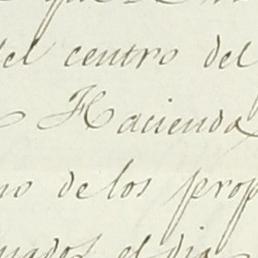 que
del centro del
Hacienda
no de los prop
el dia